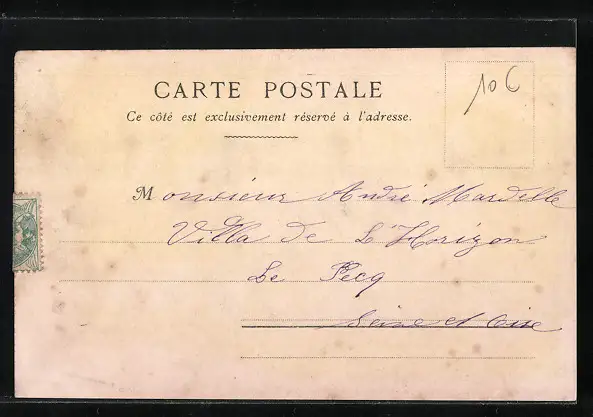 CARTE POSTALE
Ce côté est exclusivement réservé à l'adresse.
10 €
Monsieur André Mardelle
Villa de L'Horizon
Le Pecq
Seine et Oise